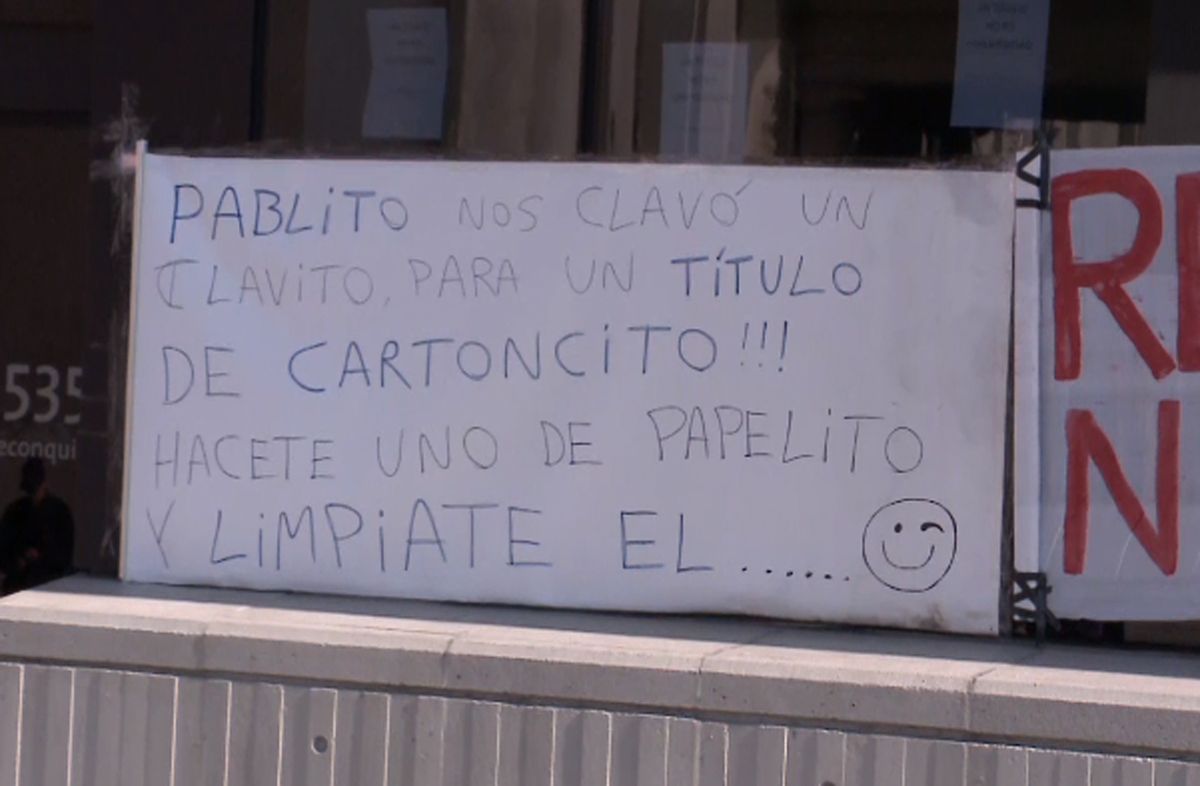 PABLiTO NOS CLAVÓ UN
CLAVITO, PARA UN TÍTULO
DE CARTONCiTO!!!
HACETE UNO DE PAPELiTO
Y LiMPiATE EL ......
RE
N
535
econqui